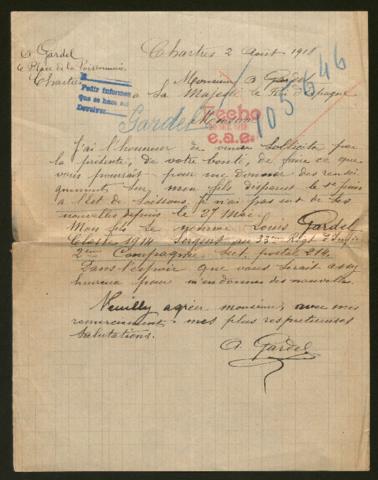 A Gardel
Place de la Poissonnerie
Chartres
Chartres 2 Aout 1918
Monsieur
a Sa Majesté le Roi d'Espagne
Pedir informes
que se hace al
Devolver
Gardel
Hecho
e.a.e.
105646
Monsieur
J'ai l'honneur de venir Solliciter par
la présente, de votre bonté, de faire ce que
vous pourrait pour me donner des rensei
gnements sur mon fils disparut le 1er juin
a l'Est de Soissons, je n'ai pas eut de Ses
nouvelles depuis le 27 Mai.
Mon fils Se nomme Louis Gardel
Classe 1914 Sergent au Regt d'Infie
2eme Compagnie Sect. postal 214.
Dans l'espoir que vous serait assez
heureux pour m'en donner des nouvelles.
Veuilly agréer monsieur, avec mes
remerciement mes plus respectueuses
Salutations.
A Gardel